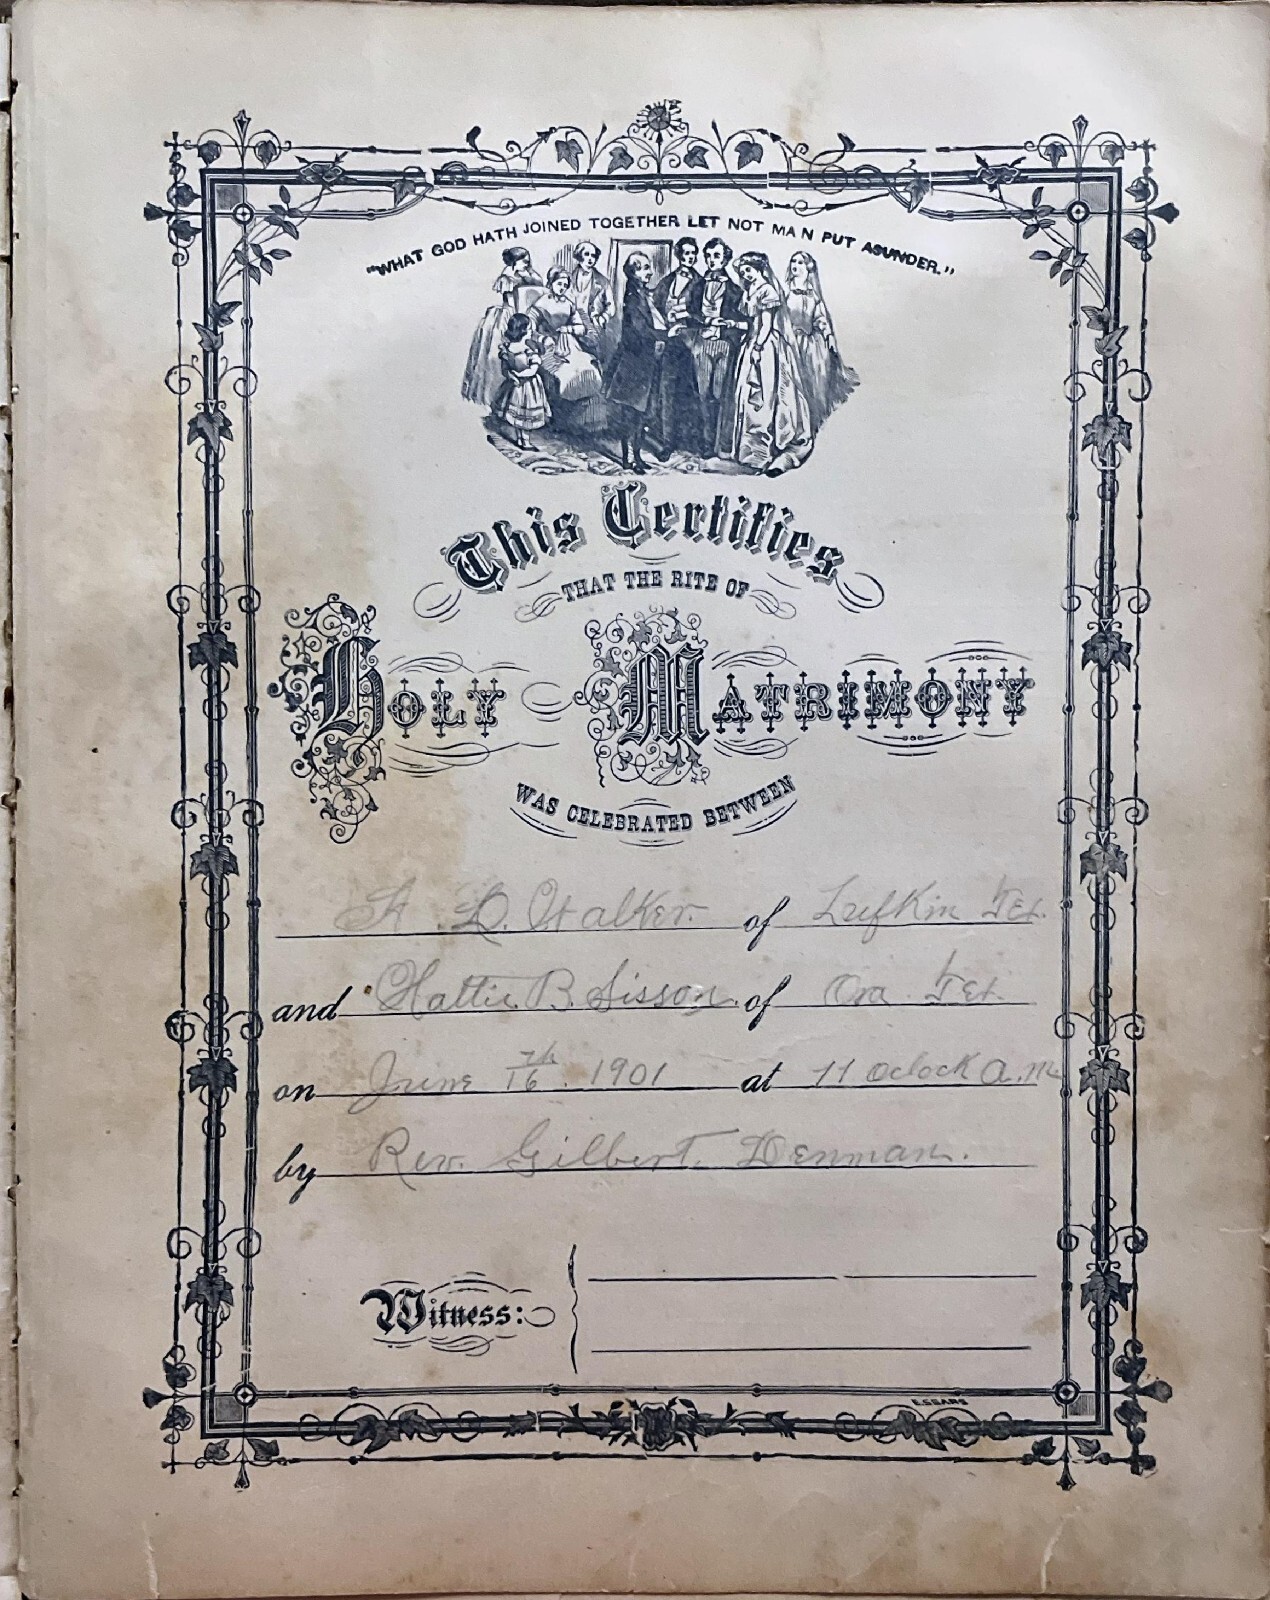 "WHAT GOD HATH JOINED TOGETHER LET NOT MAN PUT ASUNDER."
This Certifies
THAT THE RITE OF
HOLY MATRIMONY
WAS CELEBRATED BETWEEN
D. Walker of Lufkin Tex.
and Hattie B. Sisson of Ora Tex.
on June 16th. 1901 at 11 oclock a.m.
by Rev. Gilbert. Denman.
Witness:
E.SEARS